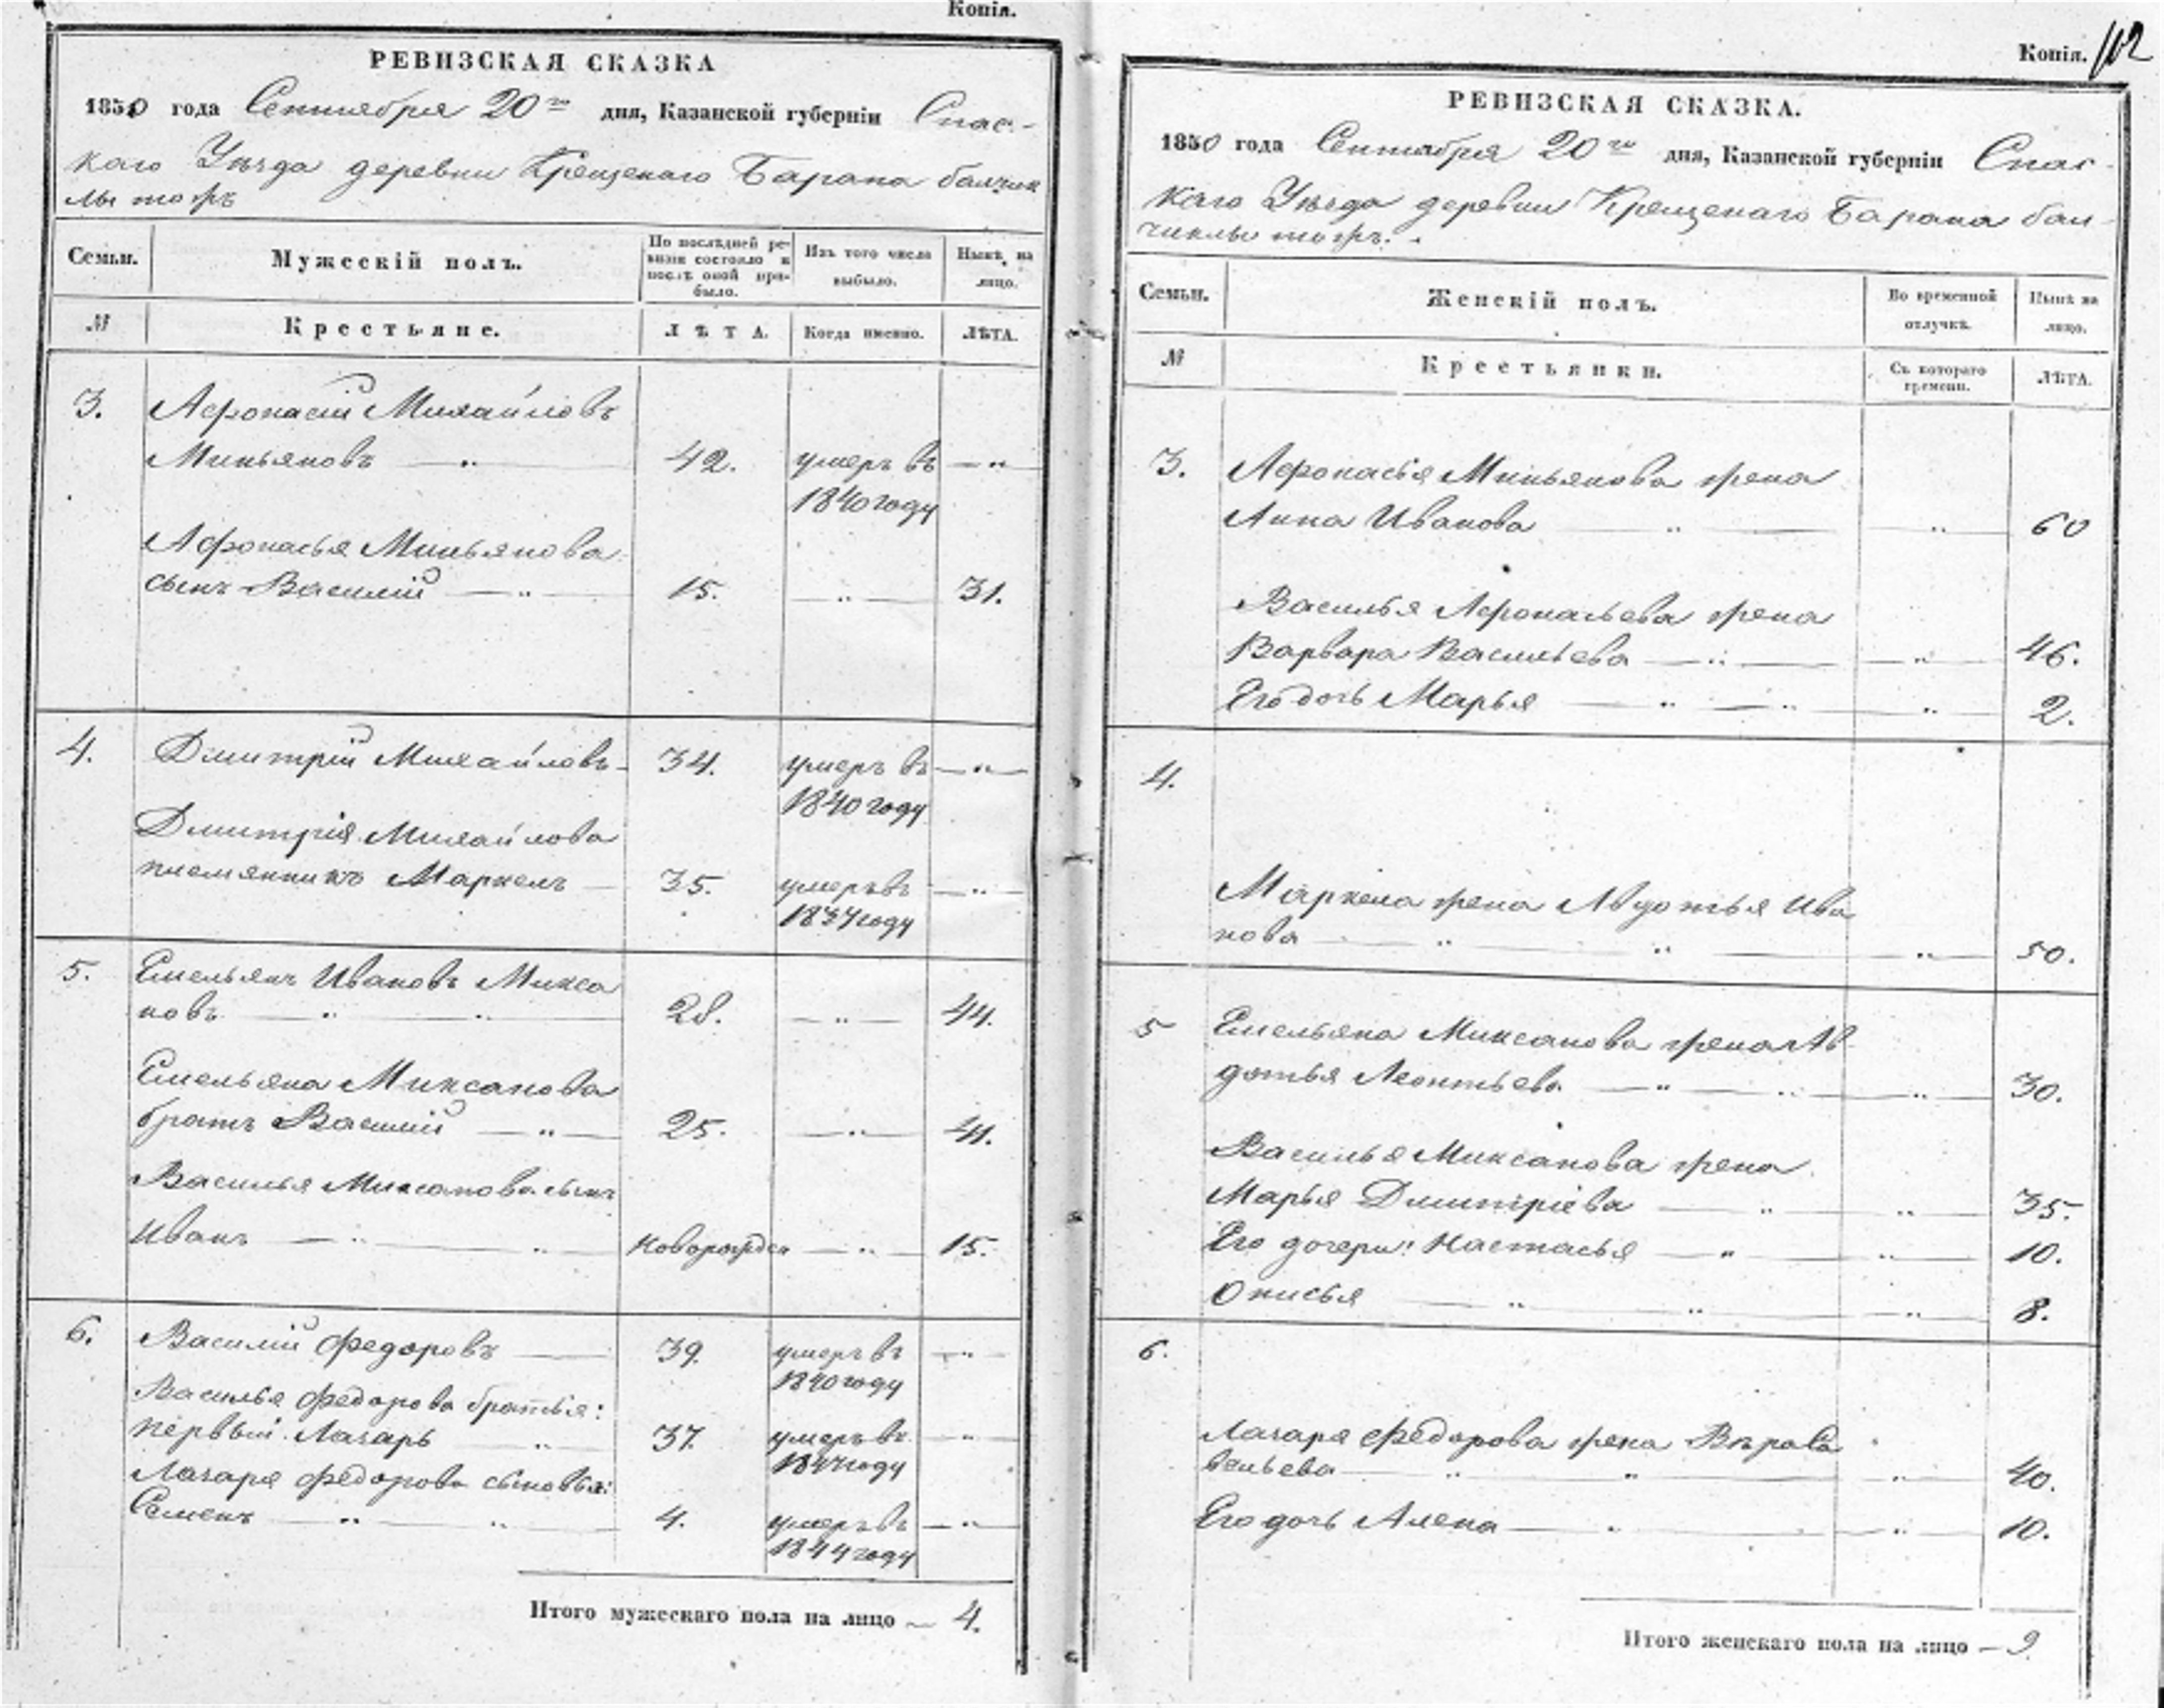 Копія.
РЕВИЗСКАЯ СКАЗКА
1850 года Сентября 20го дня, Казанской губерніи Спас-
каго Уѣзда деревни Крещенаго Барана
Семьи.
Мужескій полъ.
По послѣдней ре-
визіи состояло и
послѣ оной при-
было.
Изъ того числа
выбыло.
Нынѣ на
лицо.
№
Крестьяне.
ЛѢТА.
Когда именно.
ЛѢТА.
3. Афонасій Михайловъ
Миньяновъ 42. умеръ въ
1840 году
Афонасья Миньянова
сынъ Василій 15. 31.
4. Дмитрій Михайловъ 34. умеръ въ
1840 году
Дмитрія Михайлова
племянникъ Маркелъ 35. умеръ въ
1834 году
5. Емельянъ Ивановъ Микса
новъ 28. 44.
Емельяна Миксанова
братъ Василій 25. 41.
Василья Миксанова сынъ
Иванъ новорожден 15.
6. Василій Федоровъ 39. умеръ въ
1840 году
Василья Федорова братья:
первый Лазарь 37. умеръ въ
году
Лазаря Федорова сыновья:
Семенъ 4. умеръ въ
1844 году
Итого мужескаго пола на лицо 4.
Копія. 102
РЕВИЗСКАЯ СКАЗКА.
1850 года Сентября 20го дня, Казанской губерніи Спас-
каго Уѣзда деревни Крещенаго Барана
Семьи.
Женскій полъ.
Во временной
отлучкѣ.
Нынѣ на
лицо.
№
Крестьянки.
Съ котораго
времени.
ЛѢТА.
3. Афонасья Миньянова жена
Анна Иванова 60
Василья Афонасьева жена
Варвара Васильева 46.
Его дочь Марья 2.
4.
Маркела жена Авдотья Ива
нова 50.
5 Емельяна Миксанова жена Ав
дотья Леонтьева 30.
Василья Миксанова жена
Марья Дмитріева 35.
Его дочери: Настасья 10.
Онисья 8.
6.
Лазаря Федорова жена Вѣра Са
вельева 40.
Его дочь Алена 10.
Итого женскаго пола на лицо 9.